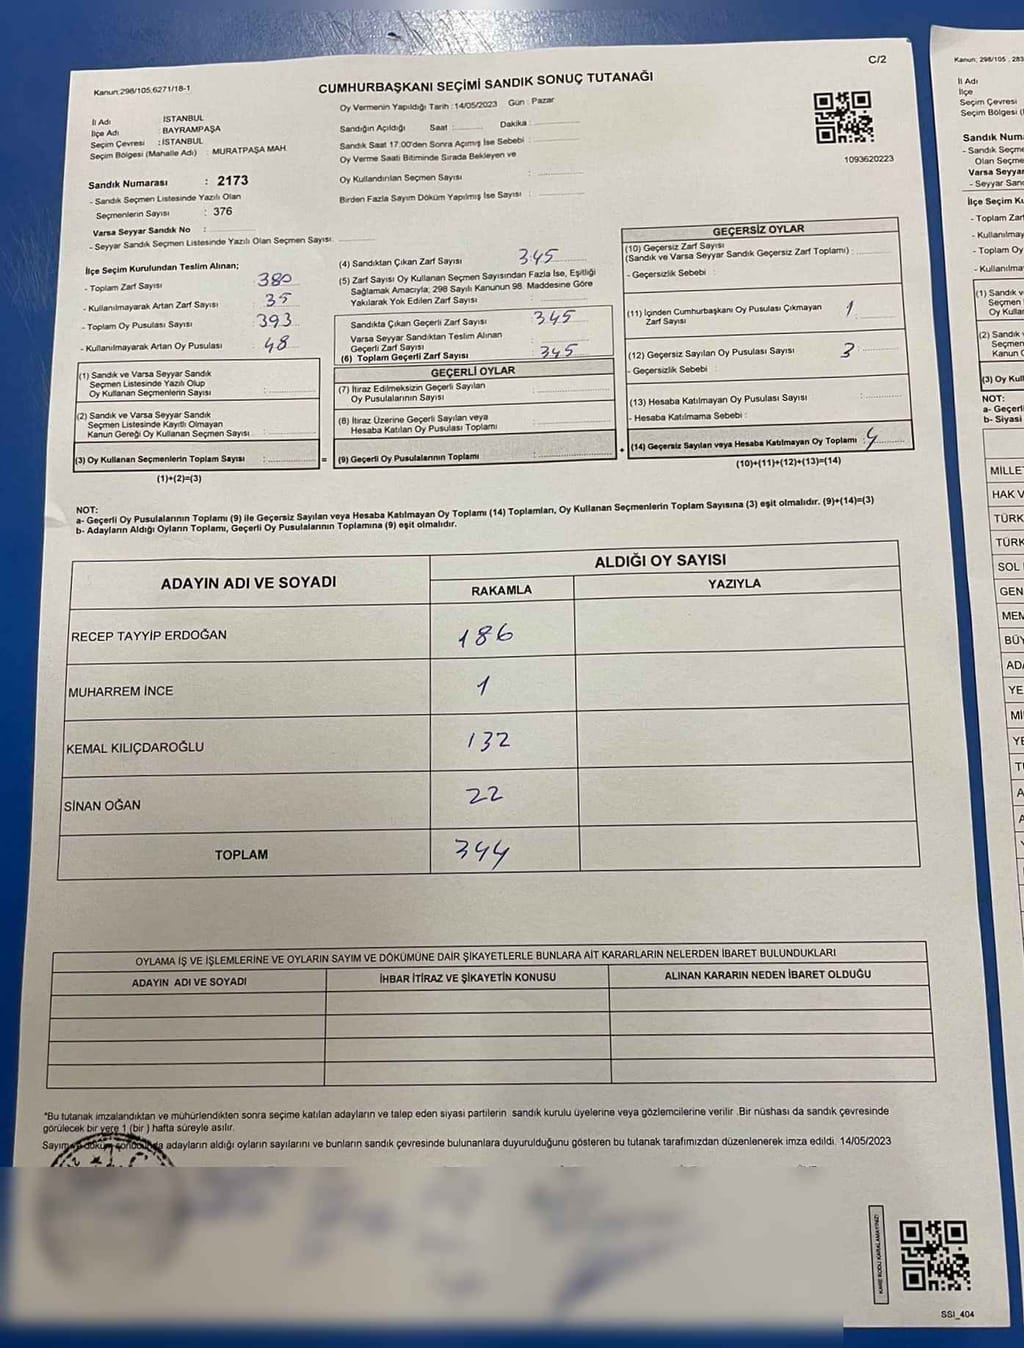 C/2
Kanun;298/105;6271/18-1
CUMHURBAŞKANI SEÇİMİ SANDIK SONUÇ TUTANAĞI
Oy Vermenin Yapıldığı Tarih :14/05/2023 Gün : Pazar
İl Adı : İSTANBUL
İlçe Adı : BAYRAMPAŞA
Seçim Çevresi : İSTANBUL
Seçim Bölgesi (Mahalle Adı) : MURATPAŞA MAH.
Sandığın Açıldığı Saat : Dakika :
Sandık Saat 17.00'den Sonra Açımış İse Sebebi :
Oy Verme Saati Bitiminde Sırada Bekleyen ve
Oy Kullandırılan Seçmen Sayısı :
Birden Fazla Sayım Döküm Yapılmış İse Sayısı :
1093620223
Sandık Numarası : 2173
- Sandık Seçmen Listesinde Yazılı Olan
Seçmenlerin Sayısı : 376
Varsa Seyyar Sandık No :
- Seyyar Sandık Seçmen Listesinde Yazılı Olan Seçmen Sayısı:
İlçe Seçim Kurulundan Teslim Alınan;
- Toplam Zarf Sayısı : 380
- Kullanılmayarak Artan Zarf Sayısı : 35
- Toplam Oy Pusulası Sayısı : 393
- Kullanılmayarak Artan Oy Pusulası : 48
(1) Sandık ve Varsa Seyyar Sandık
Seçmen Listesinde Yazılı Olup
Oy Kullanan Seçmenlerin Sayısı :
(2) Sandık ve Varsa Seyyar Sandık
Seçmen Listesinde Kayıtlı Olmayan
Kanun Gereği Oy Kullanan Seçmen Sayısı :
(3) Oy Kullanan Seçmenlerin Toplam Sayısı :
(1)+(2)=(3)
(4) Sandıktan Çıkan Zarf Sayısı : 345
(5) Zarf Sayısı Oy Kullanan Seçmen Sayısından Fazla İse, Eşitliği
Sağlamak Amacıyla; 298 Sayılı Kanunun 98. Maddesine Göre
Yakılarak Yok Edilen Zarf Sayısı :
Sandıkta Çıkan Geçerli Zarf Sayısı : 345
Varsa Seyyar Sandıktan Teslim Alınan
Geçerli Zarf Sayısı :
(6) Toplam Geçerli Zarf Sayısı : 345
GEÇERLİ OYLAR
(7) İtiraz Edilmeksizin Geçerli Sayılan
Oy Pusulalarının Sayısı :
(8) İtiraz Üzerine Geçerli Sayılan veya
Hesaba Katılan Oy Pusulası Toplamı :
= (9) Geçerli Oy Pusulalarının Toplamı :
GEÇERSİZ OYLAR
(10) Geçersiz Zarf Sayısı
(Sandık ve Varsa Seyyar Sandık Geçersiz Zarf Toplamı) :
- Geçersizlik Sebebi :
(11) İçinden Cumhurbaşkanı Oy Pusulası Çıkmayan
Zarf Sayısı : 1
(12) Geçersiz Sayılan Oy Pusulası Sayısı : 3
- Geçersizlik Sebebi :
(13) Hesaba Katılmayan Oy Pusulası Sayısı :
- Hesaba Katılmama Sebebi :
+ (14) Geçersiz Sayılan veya Hesaba Katılmayan Oy Toplamı : 4
(10)+(11)+(12)+(13)=(14)
NOT:
a- Geçerli Oy Pusulalarının Toplamı (9) ile Geçersiz Sayılan veya Hesaba Katılmayan Oy Toplamı (14) Toplamları, Oy Kullanan Seçmenlerin Toplam Sayısına (3) eşit olmalıdır. (9)+(14)=(3)
b- Adayların Aldığı Oyların Toplamı, Geçerli Oy Pusulalarının Toplamına (9) eşit olmalıdır.
ADAYIN ADI VE SOYADI
ALDIĞI OY SAYISI
RAKAMLA YAZIYLA
RECEP TAYYİP ERDOĞAN 186
MUHARREM İNCE 1
KEMAL KILIÇDAROĞLU 132
SİNAN OĞAN 22
TOPLAM 344
OYLAMA İŞ VE İŞLEMLERİNE VE OYLARIN SAYIM VE DÖKÜMÜNE DAİR ŞİKAYETLERLE BUNLARA AİT KARARLARIN NELERDEN İBARET BULUNDUKLARI
ADAYIN ADI VE SOYADI İHBAR İTİRAZ VE ŞİKAYETİN KONUSU ALINAN KARARIN NEDEN İBARET OLDUĞU
*Bu tutanak imzalandıktan ve mühürlendikten sonra seçime katılan adayların ve talep eden siyasi partilerin sandık kurulu üyelerine veya gözlemcilerine verilir .Bir nüshası da sandık çevresinde
görülecek bir yere 1 (bir ) hafta süreyle asılır.
adayların aldığı oyların sayılarını ve bunların sandık çevresinde bulunanlara duyurulduğunu gösteren bu tutanak tarafımızdan düzenlenerek imza edildi. 14/05/2023
KARE KODU KARALAMAYINIZ!
SSI_404
Kanun; 298/105
İl Adı
İlçe
Seçim Çevresi
Seçim Bölgesi
Sandık Num
- Sandık Seçme
Olan Seçme
Varsa Seyyar
- Seyyar San
İlçe Seçim Ku
- Toplam Zar
- Kullanılmay
- Toplam Oy
- Kullanılma
(1) Sandık v
Seçmen
Oy Kullan
(2) Sandık
Seçmen
Kanun
(3) Oy Kull
NOT:
a- Geçerl
b- Siyasi
MİLLE
HAK V
TÜRK
TÜRK
SOL
GEN
MEM
BÜY
AD
YE
Mİ
YE